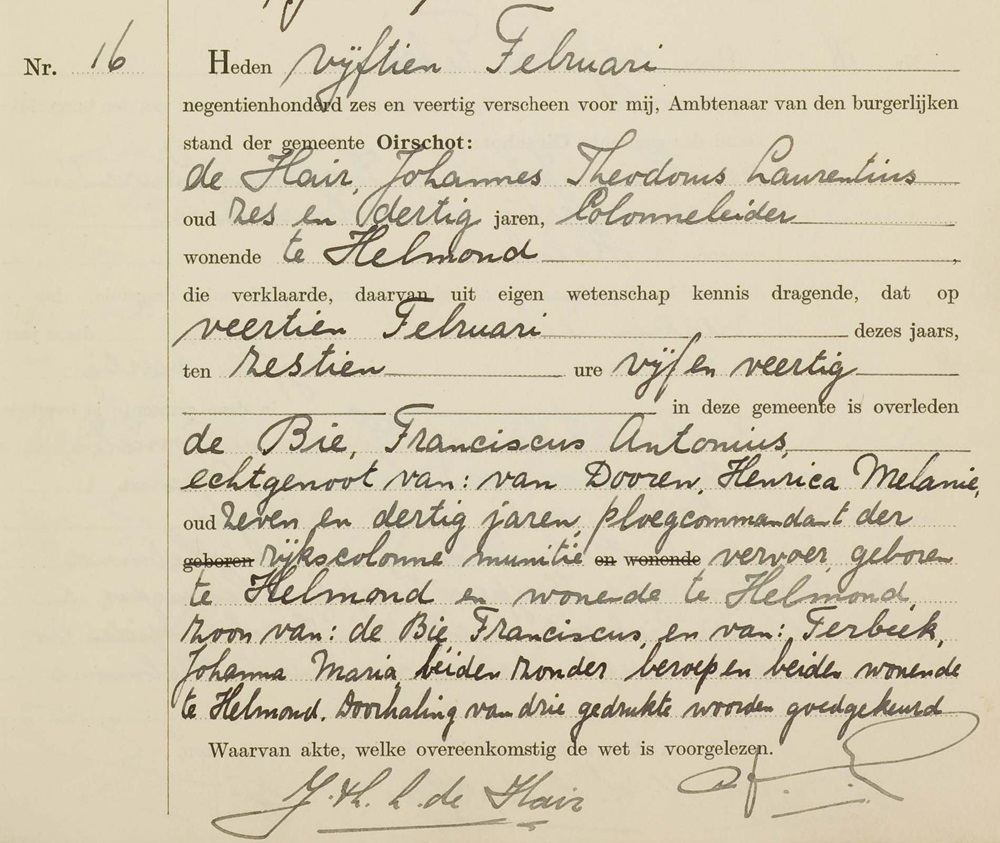 Nr. 16
Heden vijftien Februari
negentienhonderd zes en veertig verscheen voor mij, Ambtenaar van den burgerlijken
stand der gemeente Oirschot:
de Hair, Johannes Theodorus Laurentius
oud zes en dertig jaren, Colonneleider
wonende te Helmond,
die verklaarde, daarvan uit eigen wetenschap kennis dragende, dat op
veertien Februari dezes jaars,
ten zestien ure vijf en veertig
in deze gemeente is overleden
de Bie, Franciscus Antonius,
echtgenoot van: van Dooren, Henrica Melanie,
oud zeven en dertig jaren, ploegcommandant der
geboren rijkscolonne munitie en wonende vervoer, geboren
te Helmond en wonende te Helmond,
zoon van: de Bie Franciscus, en van: Terbeek,
Johanna Maria, beiden zonder beroep en beiden wonende
te Helmond. Doorhaling van drie gedrukte woorden goedgekeurd
Waarvan akte, welke overeenkomstig de wet is voorgelezen.
J. Th. L. de Hair